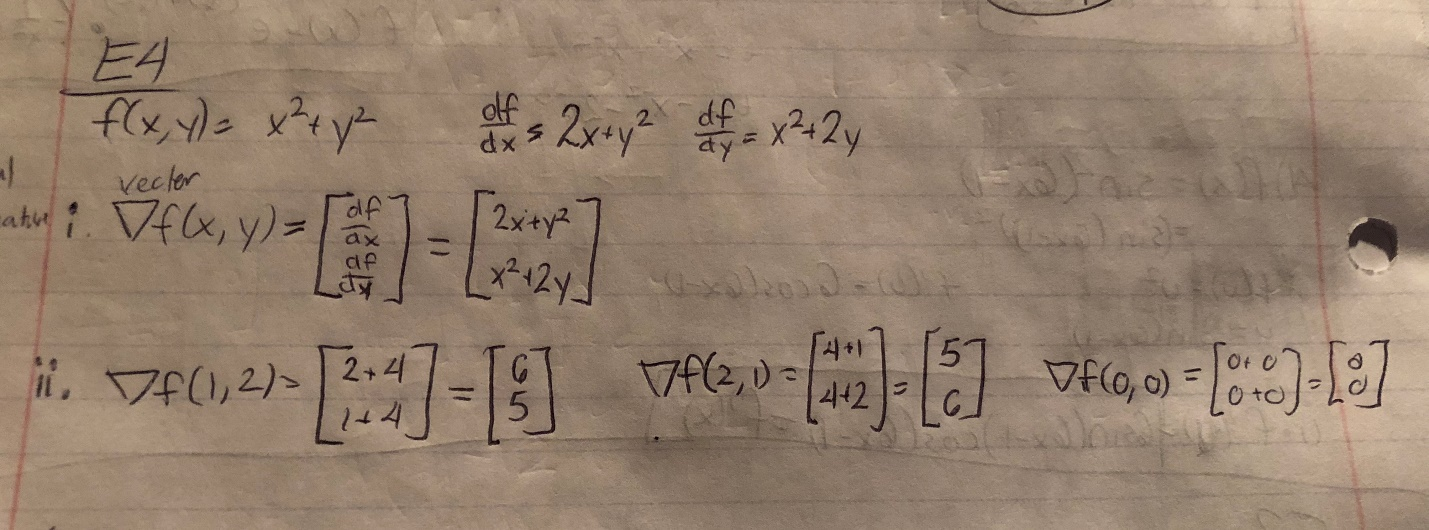 E4
f(x,y) = x²+y² df/dx = 2x+y² df/dy = x²+2y
vector
i. ∇f(x,y) = [df/dx df/dy] = [2x+y² x²+2y]
ii. ∇f(1,2) = [2+4 1+4] = [6 5] ∇f(2,1) = [4+1 4+2] = [5 6] ∇f(0,0) = [0+0 0+0] = [0 0]